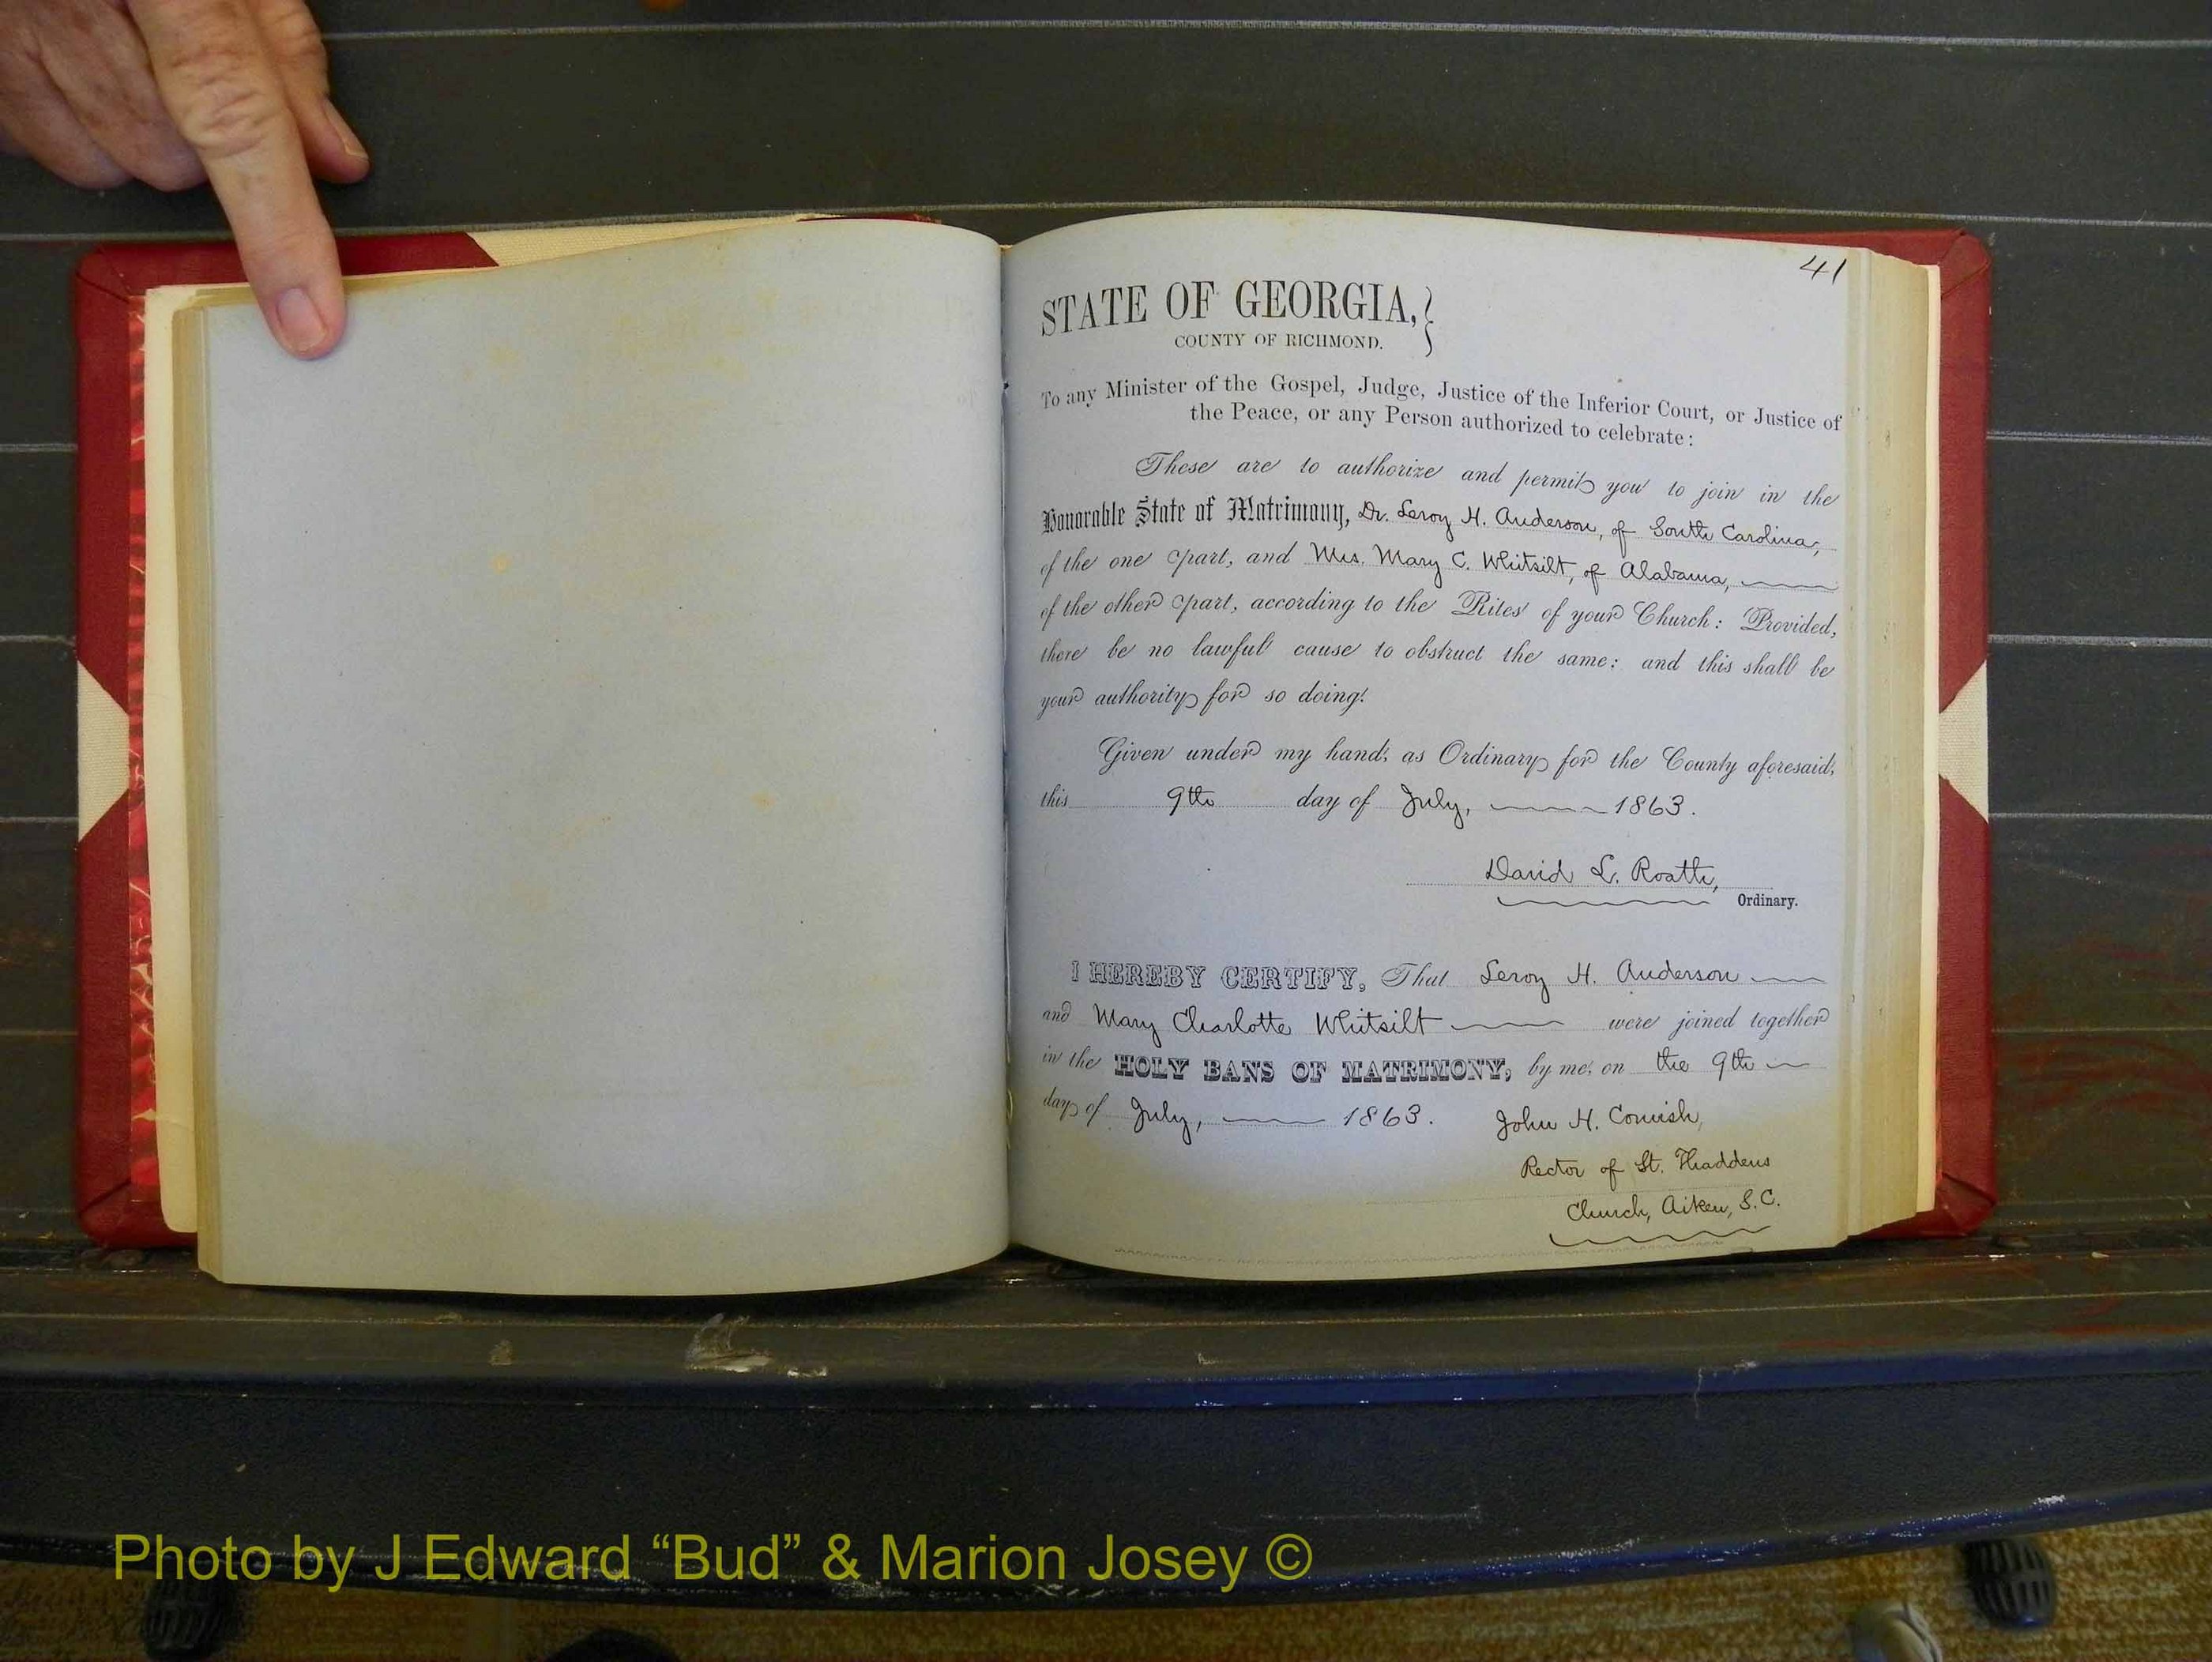 41
STATE OF GEORGIA,}
COUNTY OF RICHMOND.
To any Minister of the Gospel, Judge, Justice of the Inferior Court, or Justice of
the Peace, or any Person authorized to celebrate:
These are to authorize and permit you to join in the
Honorable State of Matrimony, Dr. Leroy H. Anderson, of South Carolina,
of the one part, and Mrs. Mary C. Whitsilt, of Alabama,
of the other part, according to the Rites of your Church: Provided,
there be no lawful cause to obstruct the same: and this shall be
your authority for so doing.
Given under my hand, as Ordinary for the County aforesaid,
this 9th day of July, 1863.
David L. Roath,
Ordinary.
I HEREBY CERTIFY, That Leroy H. Anderson
and Mary Charlotte Whitsilt were joined together
in the HOLY BANS OF MATRIMONY, by me, on the 9th
day of July, 1863. John H. Cornish,
Rector of St. Thaddeus
Church, Aiken, S.C.
Photo by J Edward “Bud” & Marion Josey ©